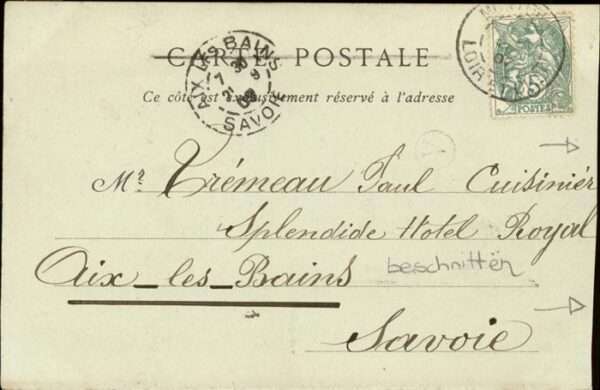 CARTE POSTALE
Ce côté est exclusivement réservé à l'adresse
AIX LES BAINS
SAVOIE
LOIR
POSTES
Mr. Trémeau Paul Cuisinier
Splendide Hotel Royal
Aix_les_Bains
beschnitten
Savoie